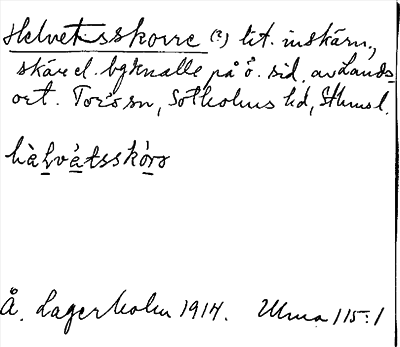 Helvetsskorre (?) lit. inskärn.,
skär el. bgknalle på ö. sid. av Lands
ort. Torö sn, Sotholms hd, Sthms l.
hàlvátsskó̀rə
Å. Lagerholm 1914. Ulma 115:1